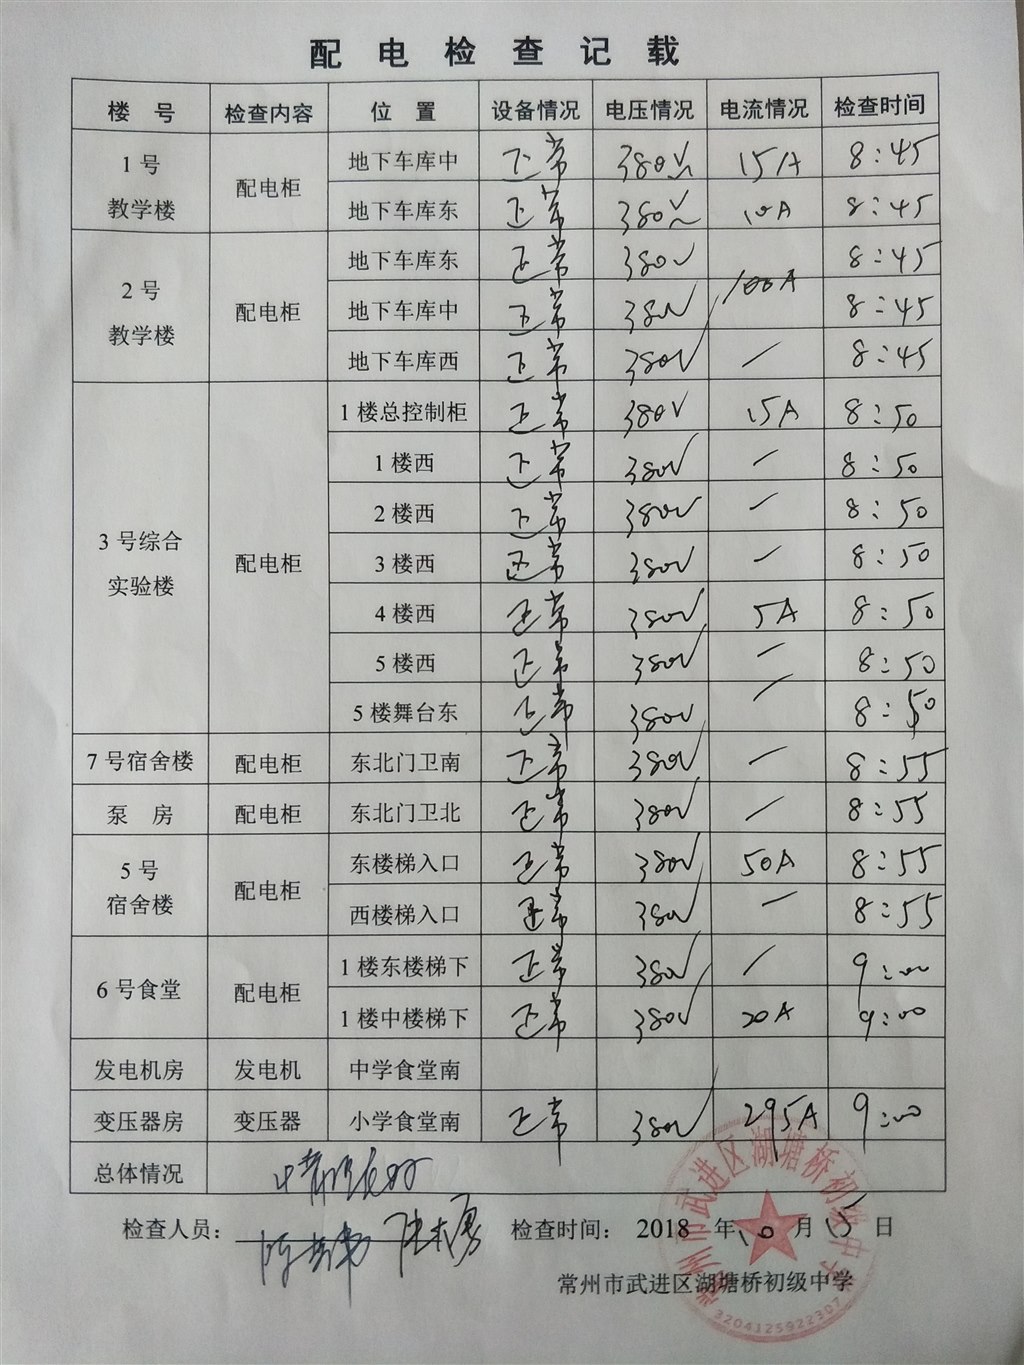 配电检查记载
楼号 检查内容 位置 设备情况 电压情况 电流情况 检查时间
1号教学楼 配电柜 地下车库中 正常 380V 15A 8:45
地下车库东 正常 380V 10A 8:45
2号教学楼 配电柜 地下车库东 正常 380V 100A 8:45
地下车库中 正常 380V 8:45
地下车库西 正常 380V — 8:45
3号综合实验楼 配电柜 1楼总控制柜 正常 380V 15A 8:50
1楼西 正常 380V — 8:50
2楼西 正常 380V — 8:50
3楼西 正常 380V — 8:50
4楼西 正常 380V 5A 8:50
5楼西 正常 380V — 8:50
5楼舞台东 正常 380V — 8:50
7号宿舍楼 配电柜 东北门卫南 正常 380V — 8:55
泵房 配电柜 东北门卫北 正常 380V — 8:55
5号宿舍楼 配电柜 东楼梯入口 正常 380V 50A 8:55
西楼梯入口 正常 380V — 8:55
6号食堂 配电柜 1楼东楼梯下 正常 380V — 9:00
1楼中楼梯下 正常 380V 20A 9:00
发电机房 发电机 中学食堂南
变压器房 变压器 小学食堂南 正常 380V 295A 9:00
总体情况
检查人员: 检查时间: 2018年10月15日
常州市武进区湖塘桥初级中学
常州市武进区湖塘桥初级中学
3204125922307